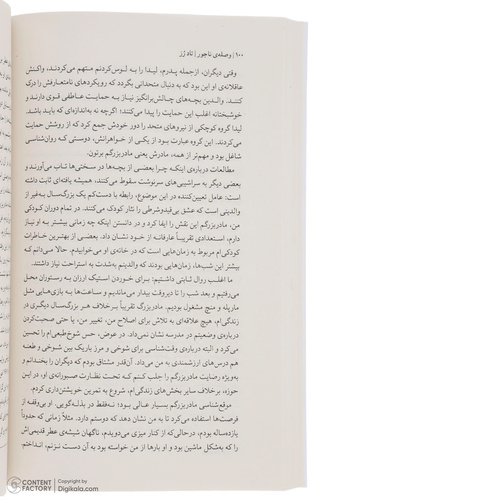 ۱۰۰ | وصله‌ی ناجور | تاد رُز
وقتی دیگران، ازجمله پدرم، لیدا را به لوس‌کردنم متهم می‌کردند، واکنش
عاقلانه‌ی او این بود که به دنبال متحدانی بگردد که رویکردهای نامتعارفش را درک
کنند. والدین بچه‌های چالش‌برانگیز نیاز به حمایت عاطفی قوی دارند و
خوشبختانه اغلب این حمایت را پیدا می‌کنند؛ اگرچه نه به‌اندازه‌ای که باید باشد.
لیدا گروه کوچکی از نیروهای متحد را دور خودش جمع کرد که از روشش حمایت
می‌کردند. این گروه عبارت بود از یکی از خواهرانش، دوستی که روان‌شناسی
شاغل بود و مهم‌تر از همه، مادرش یعنی مادربزرگم برتون.
مطالعات درباره‌ی اینکه چرا بعضی از بچه‌ها در سختی‌ها تاب می‌آورند و
بعضی دیگر به سراشیبی‌های سرنوشت سقوط می‌کنند، همیشه یافته‌ای ثابت داشته
است: عامل تعیین‌کننده در این موضوع، رابطه با دست‌کم یک بزرگ‌سال به‌غیر از
والدینی است که عشق بی‌قیدوشرطی را نثار کودک می‌کنند. در تمام دوران کودکی
من، مادربزرگم این نقش را ایفا کرد و در دانستن اینکه چه زمانی بیشتر به او نیاز
دارم، استعدادی تقریباً عارفانه از خود نشان داد. بعضی از بهترین خاطرات
کودکی‌ام مربوط به زمان‌هایی است که در خانه‌ی او می‌خوابیدم. حالا می‌دانم که
بیشتر این شب‌ها، زمان‌هایی بودند که والدینم به‌شدت به استراحت نیاز داشتند.
ما اغلب روال ثابتی داشتیم: برای خوردن استیک ارزان به رستوران محل
می‌رفتیم و بعد شب را تا دیروقت بیدار می‌ماندیم و ساعت‌ها به بازی‌هایی مثل
مارپله و منچ مشغول بودیم. مادربزرگ تقریباً برخلاف هر بزرگ‌سال دیگری در
زندگی‌ام، هیچ علاقه‌ای به تلاش برای اصلاح من، تغییر من، یا حتی صحبت‌کردن
درباره‌ی وضعیتم در مدرسه نشان نمی‌داد. در عوض، حس شوخ‌طبعی‌ام را تحسین
می‌کرد و البته درباره‌ی وقت‌شناسی برای شوخی و مرز باریک بین شوخی و طعنه
هم درس‌های ارزشمندی به من می‌داد. آن‌قدر مشتاق بودم که دیگران را بخندانم و
به‌ویژه رضایت مادربزرگم را جلب کنم که تحت نظارت صبورانه‌ی او، در این
حوزه، برخلاف سایر بخش‌های زندگی‌ام، شروع به تمرین خویشتن‌داری کردم.
موقع‌شناسی مادربزرگم بسیار عالی بود؛ نه‌فقط در بذله‌گویی. او بی‌وقفه از
فرصت‌ها استفاده می‌کرد تا به من نشان دهد که دوستم دارد. مثلاً زمانی که حدوداً
یازده‌ساله بودم، درحالی‌که از کنار میزی می‌دویدم، ناگهان شیشه‌ی عطر قدیمی‌اش
را که به‌شکل ماشین بود و او بارها از من خواسته بود به آن دست نزنم، انداختم.
CONTENT FACTORY
Copyright by
Digikala.com